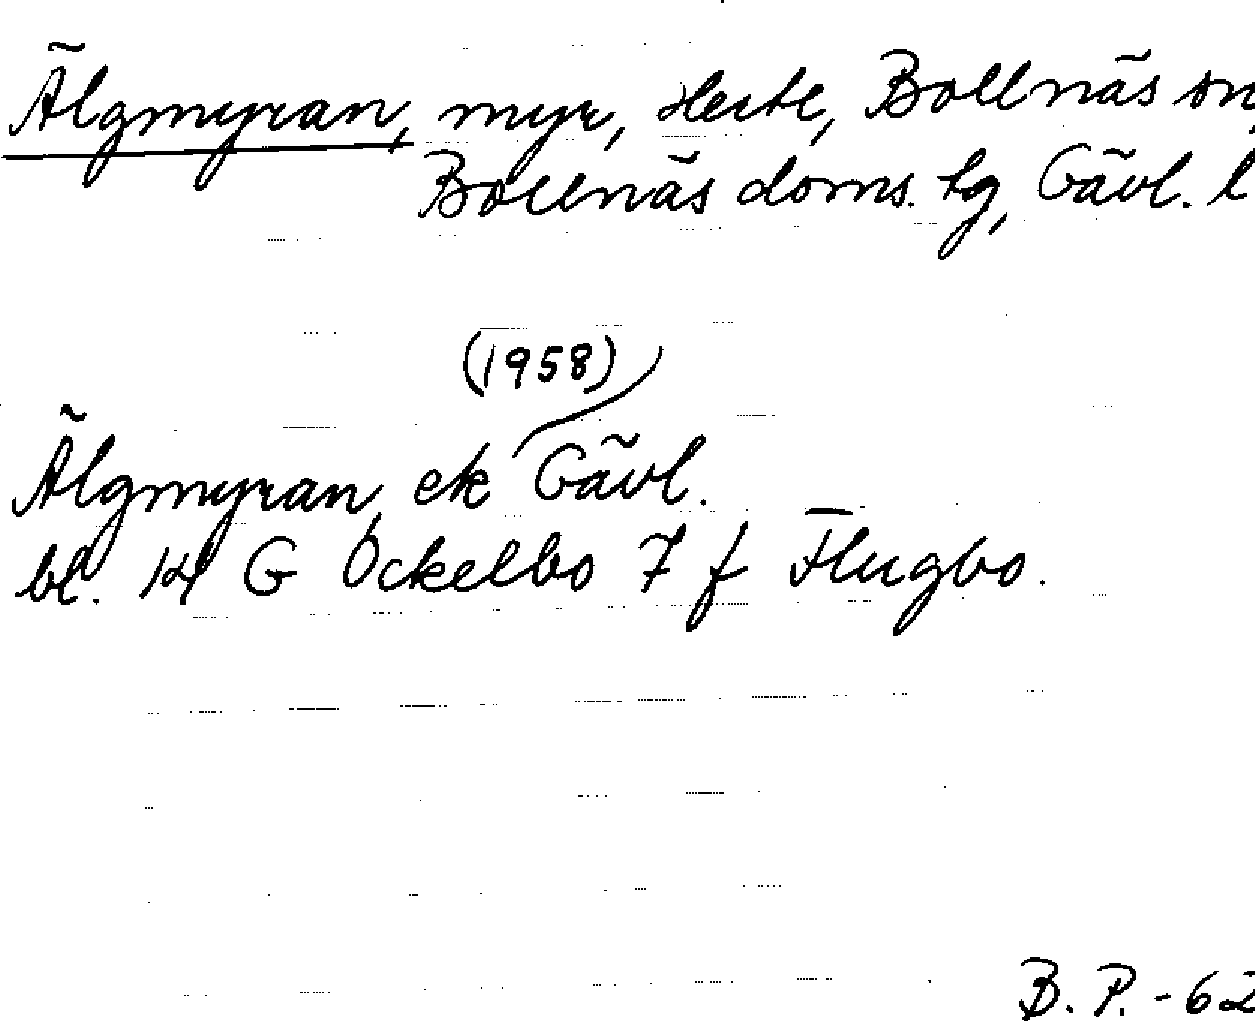 Älgmyran, myr, Herte, Bollnäs sn,
Bollnäs doms. tg, Gävl. l
(1958)
Älgmyran, ek Gävl.
bl. 14 G Ockelbo 7 f Flugbo.
B. P. - 62